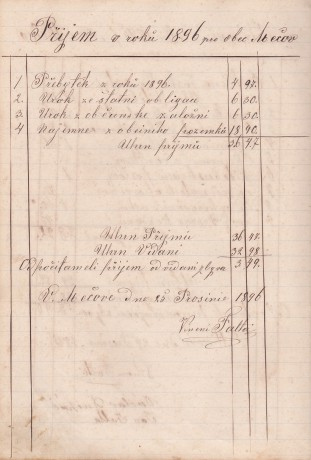 Příjem v roků 1896 pro obec Mečov
1 Přibytek z roků 1896. 4 97.
2. Urok ze statni obligaci 6 30.
3 Urok z občenske založni 6 30.
4 Najemne z obciního pozemků 18 90.
Uhrn příjmů 36 47
Uhrn Příjmů 36 47.
Uhrn Vidani 32 98.
Odpočitameli příjem od vidani zbyva 3 49.
V Mečove dne 25. Prosince 1896